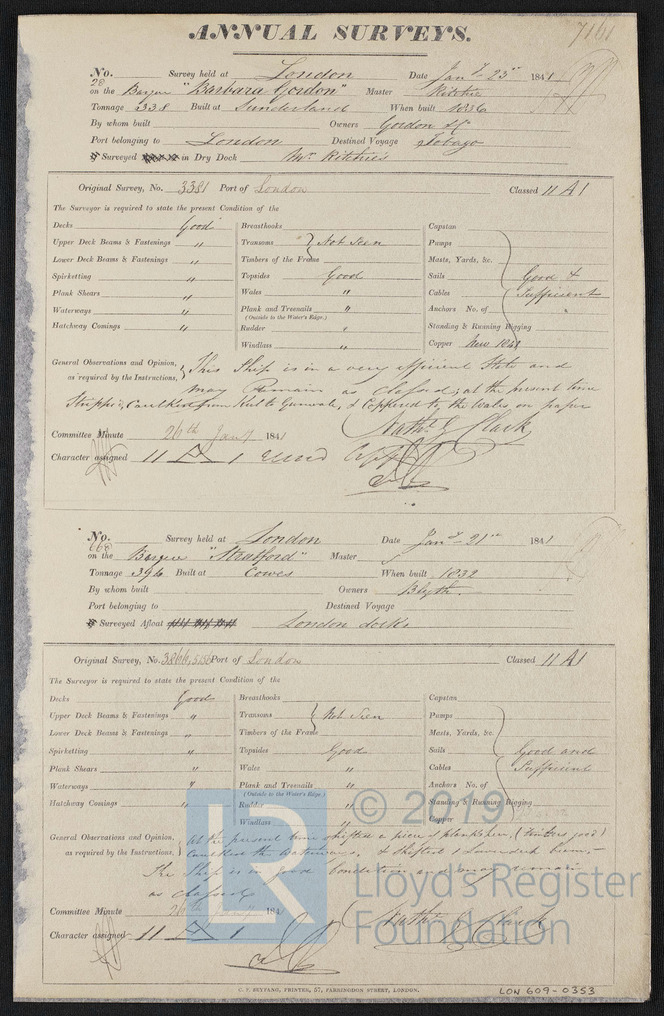 7161
ANNUAL SURVEYS.
No. 28 Survey held at London Date Jany 23rd 1841
on the Barque "Barbara Gordon" Master Ritchie
Tonnage 338 Built at Sunderland When built 1836
By whom built Owners Gordon & Co
Port belonging to London Destined Voyage Tobago
Surveyed in Dry Dock Mr Ritchies
Original Survey, No. 3381 Port of London Classed 11 A 1
The Surveyor is required to state the present Condition of the
Decks Good Breasthooks Capstan
Upper Deck Beams & Fastenings " Transoms Not Seen Pumps
Lower Deck Beams & Fastenings " Timbers of the Frame Masts, Yards, &c.
Spirketting " Topsides Good Sails Good &
Plank Shears " Wales " Cables Sufficient
Waterways " Plank and Treenails " Anchors No. of
(Outside to the Water's Edge.)
Hatchway Comings " Rudder " Standing & Running Rigging
Windlass " Copper New 1841
General Observations and Opinion, This Ship is in a very efficient State and
as required by the Instructions, may Remain as classed; at the present time
Stripped, Caulked from Keel to Gunwale, & Coppered to the Wales on paper
Nathl. Clark
Committee Minute 26th Jany 1841
Character assigned 11 A 1
No. 660 Survey held at London Date Jany 21st 1841
on the Barque "Stratford" Master
Tonnage 394 Built at Cowes When built 1832
By whom built Owners Blyth.
Port belonging to Destined Voyage
Surveyed Afloat London docks
Original Survey, No. 3866, 5150 Port of London Classed 11 A 1
The Surveyor is required to state the present Condition of the
Decks Good Breasthooks Capstan
Upper Deck Beams & Fastenings " Transoms Not Seen Pumps
Lower Deck Beams & Fastenings " Timbers of the Frame Masts, Yards, &c.
Spirketting " Topsides Good Sails Good and
Plank Shears " Wales " Cables Sufficient
Waterways " Plank and Treenails " Anchors No. of
(Outside to the Water's Edge.)
Hatchway Comings " Rudder Standing & Running Rigging
Windlass " Copper
General Observations and Opinion, At the present time shifted a piece of plank shear, (timbers good)
as required by the Instructions, Caulked the Waterways, & Shifted
The Ship is in good Condition and may remain
as classed
Committee Minute 26th Jany 1841
Nathl. Clark
Character assigned 11 A 1
C. F. SEYFANG, PRINTER, 57, FARRINGDON STREET, LONDON.
LON 609-0353
© 2019
LR
Lloyd's Register
Foundation